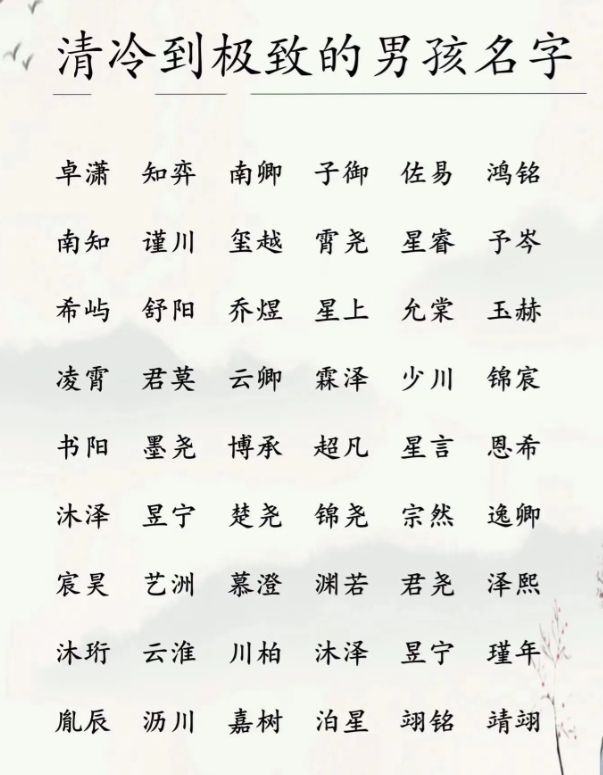 清冷到极致的男孩名字
卓潇 知弈 南卿 子御 佐易 鸿铭
南知 谨川 玺越 霄尧 星睿 予岑
希屿 舒阳 乔煜 星上 允棠 玉赫
凌霄 君莫 云卿 霖泽 少川 锦宸
书阳 墨尧 博承 超凡 星言 恩希
沐泽 昱宁 楚尧 锦尧 宗然 逸卿
宸昊 艺洲 慕澄 渊若 君尧 泽熙
沐珩 云淮 川柏 沐泽 昱宁 瑾年
胤辰 沥川 嘉树 泊星 翊铭 靖翊